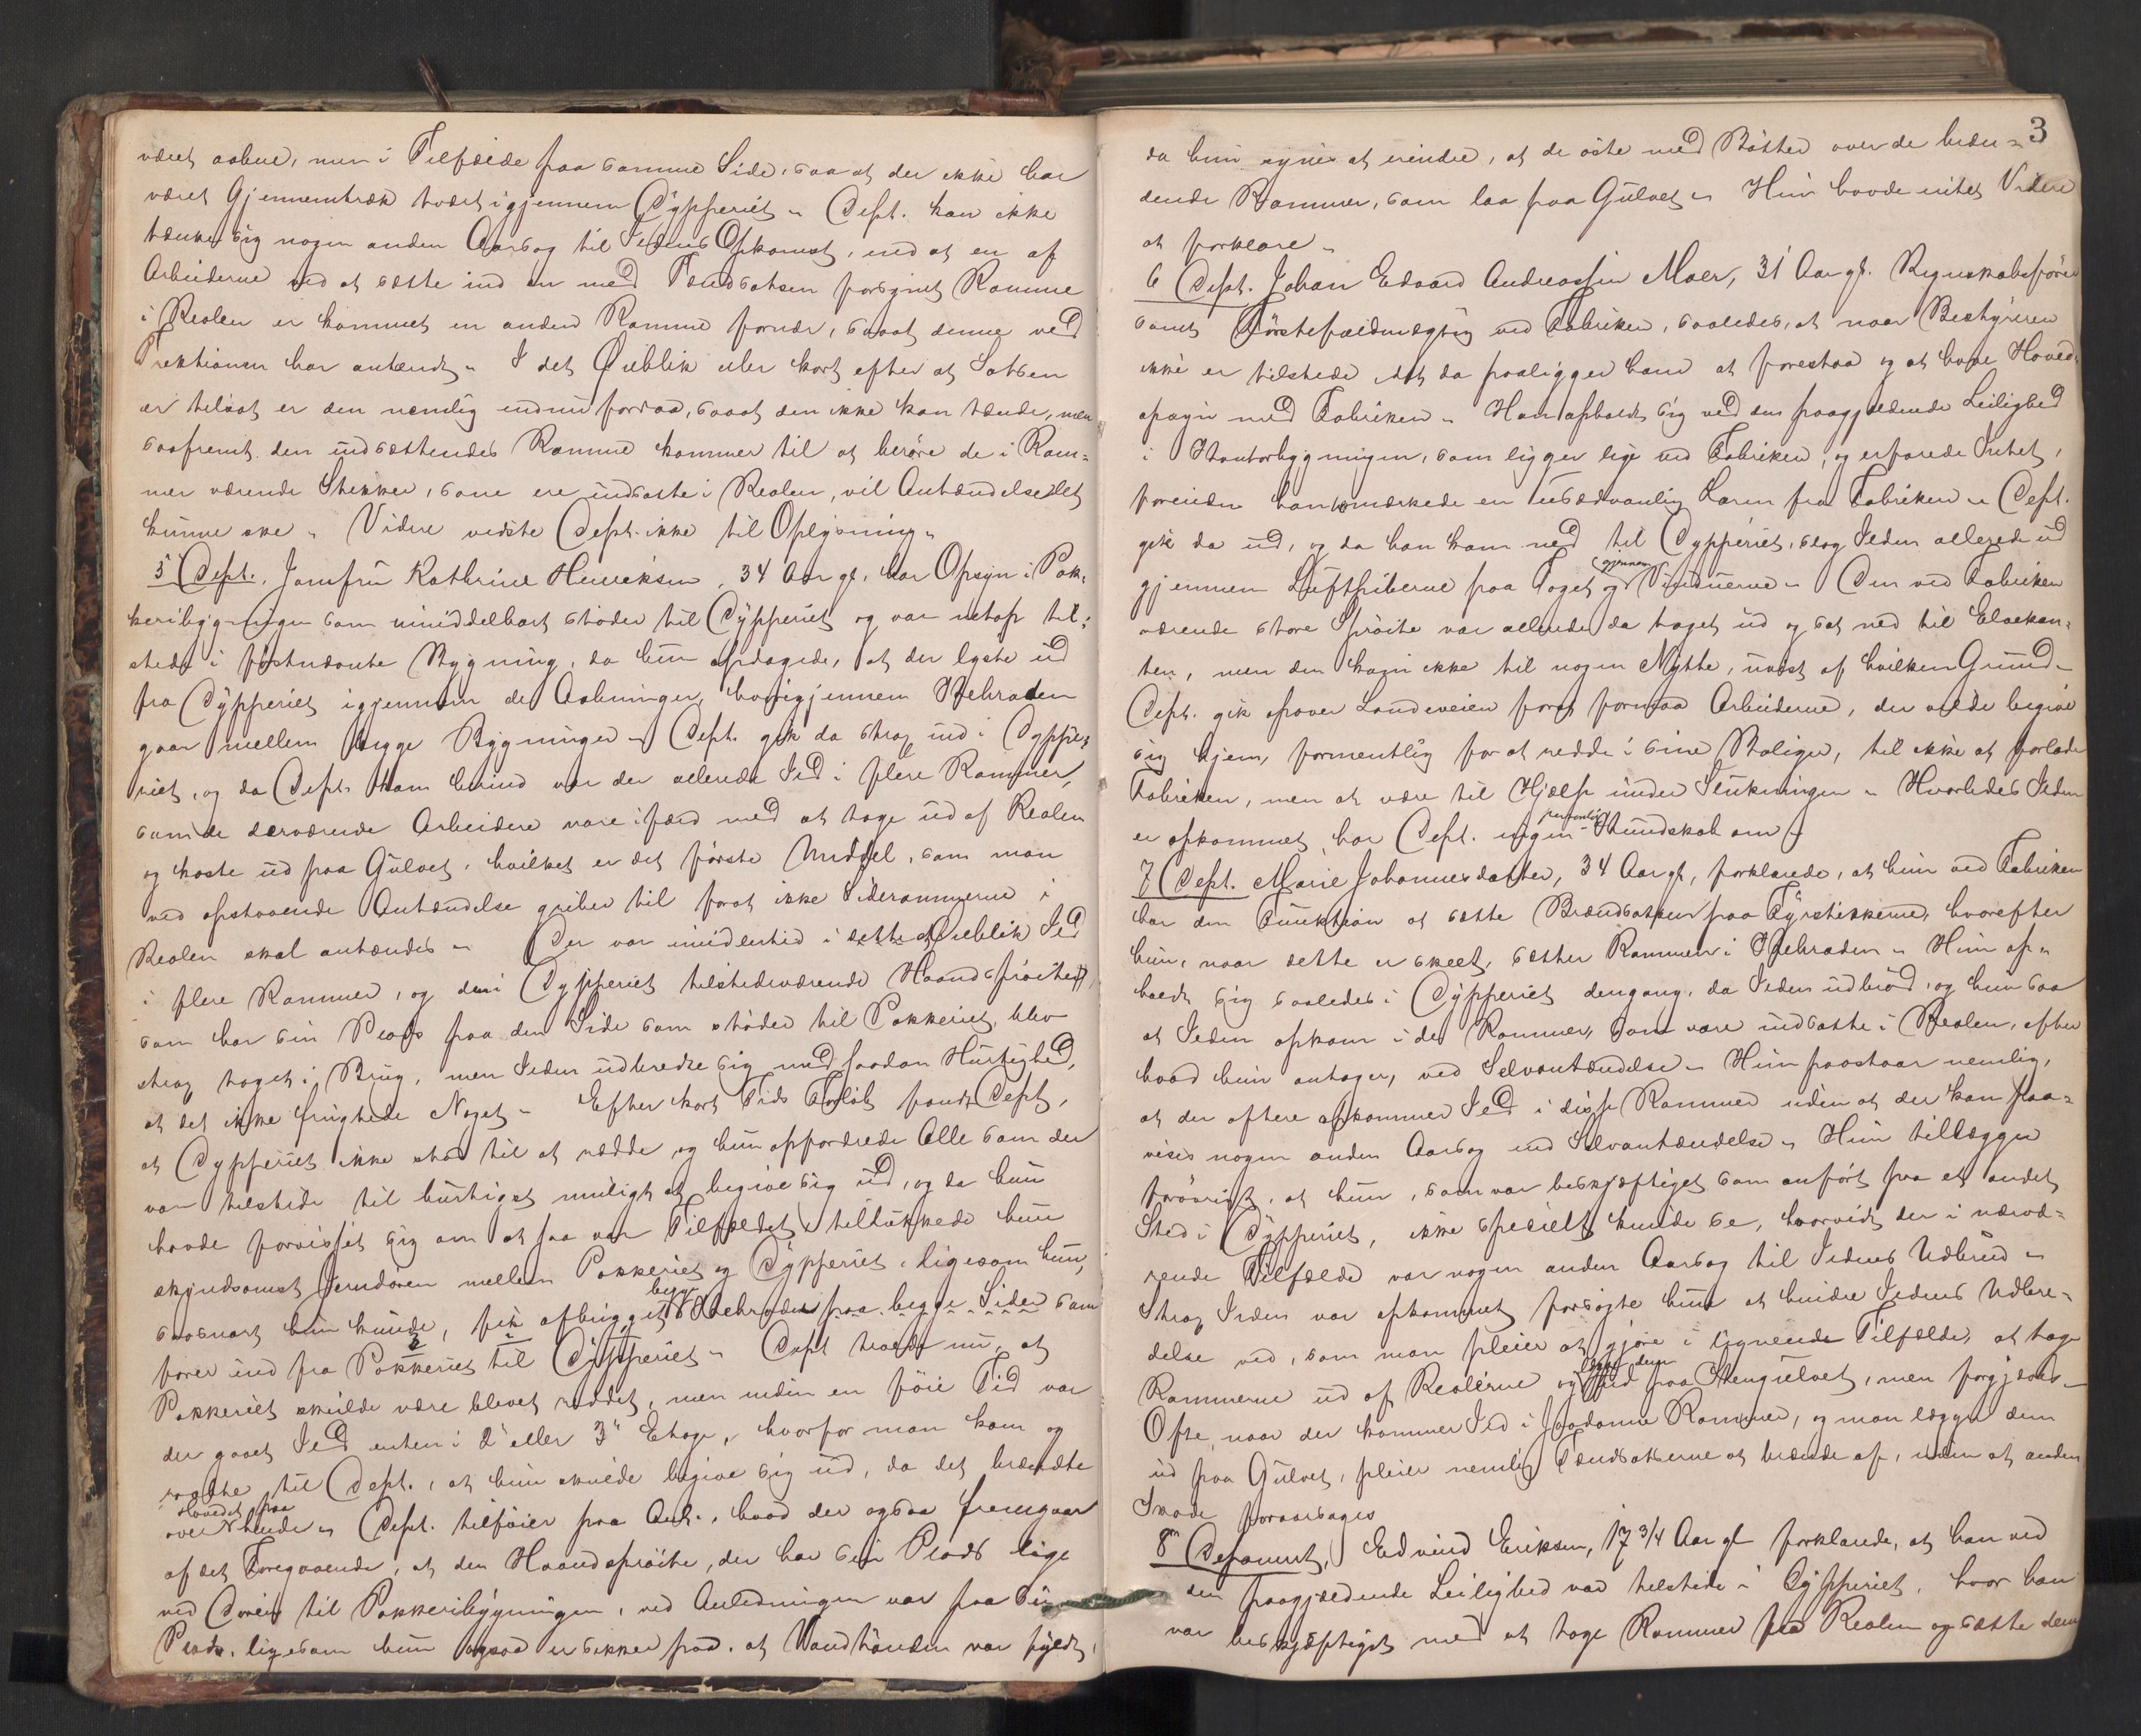 været aabne, men i Tilfælde paa samme Side, saa at der ikke har
været Gjennemtræk tvært igjennem Dypperiet. Dept. kan ikke
tænke sig nogen anden Aarsag til Ildens Opkomst, end at en af
Arbeiderne ved at sætte ind en med Tændsatsen forsynet Ramme
i Reolen er kommet en anden Ramme for nær, saaat denne ved
Friktionen har antændt. I det Øieblik eller kort efter at Satsen
er tilsat er den nemlig endnu for raa, saaat den ikke kan tænde, men
saafremt den indsættendes Ramme kommer til at berøre de i Ram-
mer værende Stikker, som ere indsatte i Reolen, vil Antændelse let
kunne ske. Videre vidste Dept. ikke til Oplysning.
5 Dept. Jomfru Kathrine Henriksen, 34 Aar gl. har Opsyn i Pak-
keribygningen som umiddelbart støder til Dypperiet og var netop til-
stede i sidstnævnte Bygning, da hun opdagede, at der lyste ud
fra Dypperiet igjennem de Aabninger, hvorigjennem Kjelraden
gaar mellem begge Bygninger. Dept. gik da strax ind i Dyppe-
riet, og da Dept. kom herind var der allerede Ild i flere Rammer,
som de derværende Arbeidere vare ifærd med at tage ud af Reolen
og kaste ud paa Gulvet, hvilket er det første Middel, som man
ved opstaaende Antændelse griber til forat ikke Siderammerne i
Reolen skal antændes. Der var imidlertid i dette Øieblik Ild
i flere Rammer, og den i Dypperiet tilstedeværende Haandsprøite,
som har sin Plads paa den Side som støder til Pakkeriet, blev
strax taget i Brug, men Ilden udbredte sig med saadan Hurtighed,
at det ikke frugtede Noget. Efter kort Tids Forløb fandt Dept,
at Dypperiet ikke stod til at redde og hun opfordrede Alle som der
var tilstede til hurtigst muligt at begive sig ud, og da hun
havde forvisset sig om at saa var Tilfældet, tillukkede hun
skyndsomst Jerndøren mellem Pakkeriet og Dypperiet, ligesom hun,
saasnart hun kunde, fik afbrugget begge paa begge Sider som
fører ind fra Pakkeriet til Dypperiet. Dept troede nu, at
Pakkeriet skulde være blevet reddet, men inden en føie Tid var
der gaaet Ild enten i 2den eller 3die Etage, hvorfor man kom og
sagde til Dept., at hun skulde begive sig ud, da det brændte
over Hovedet paa hende. Dept. tilføier paa Anl., hvad der ogsaa fremgaar
af det Foregaaende, at den Haandsprøite, der har sin Plads lige
ved Døren til Pakkeribygningen, ved Anledningen var paa sin
Plads, ligesom hun ogsaa er sikker paa, at Vandtønden var fyldt,
3
da hun synes at erindre, at de øste med Bøtter over de bræn-
dende Rammer, som laa paa Gulvet. Hun havde intet Videre
at forklare.
6 Dept. Johan Edvard Andreassen Moer, 31 Aar gl. Regnskabsfører
samt Førstefuldmægtig ved Fabriken, saaledes, at naar Bestyreren
ikke er tilstede det da paaligger ham at forestaa og at have Hoved-
opsyn med Fabriken. Han opholdt sig ved den paagjældende Leilighed
i Kontorbygningen, som ligger lige ved Fabriken, og erfarede Intet,
forinden han bemærkede en usædvanlig Larm fra Fabriken. Dept.
gik da ud, og da han kom ned til Dypperiet, slog Ilden allerede ud
gjennem Luftpiberne paa Taget og gjennem Vinduerne. Den ved Fabriken
værende store Sprøite var allerede da taget ud og sat ned til Elvekan-
ten, men den kom ikke til nogen Nytte, uvist af hvilken Grund.
Dept. gik opover Landeveien forat formaa Arbeiderne, der vilde begive
sig hjem, formentlig for at redde i sine Boliger, til ikke at forlade
Fabriken, men at være til Hjælp under Slukningen. Hvorledes Ilden
er opkommet, har Dept. ingen personlig Kundskab om.
7 Dept. Marie Johannesdatter, 34 Aar gl, forklarede, at hun ved Fabriken
har den Funktion at sætte Brændsatsen paa Fyrstikkerne, hvorefter
hun, naar dette er skeet, sætter Rammer i Kjelraden. Hun op-
holdt sig saaledes i Dypperiet dengang, da Ilden udbrød, og hun saa
at Ilden opkom i de Rammer, som vare indsatte i Reolen, efter
hvad hun antager, ved Selvantændelse. Hun paastaar nemlig,
at der oftere opkommer Ild i disse Rammer uden at der kan paa-
vises nogen anden Aarsag end Selvantændelse. Hun tillægger
forøvrigt, at hun, som var beskjæftiget som anført paa et andet
Sted i Dypperiet, ikke specielt kunde se, hvorvidt der i nærvæ-
rende Tilfælde var nogen anden Aarsag til Ildens Udbrud.
Strax Ilden var opkommet forsøgte hun at hindre Ildens Udbre-
delse ved, som man pleier at gjøre i lignende Tilfælde, at tage
Rammerne ud af Reolerne og lægge dem ned paa Stengulvet, men forgjæves.
Ofte, naar der kommer Ild i saadanne Rammer, og man lægger dem
ud paa Gulvet, pleier nemlig Tændsatserne at brænde af, uden at anden
Skade foraarsages
8de Deponent, Edvind Eriksen, 17 3/4 Aar gl forklarede, at han ved
den paagjældende Leilighed var tilstede i Dypperiet, hvor han
var beskjæftiget med at tage Rammer fra Reolen og sætte dem